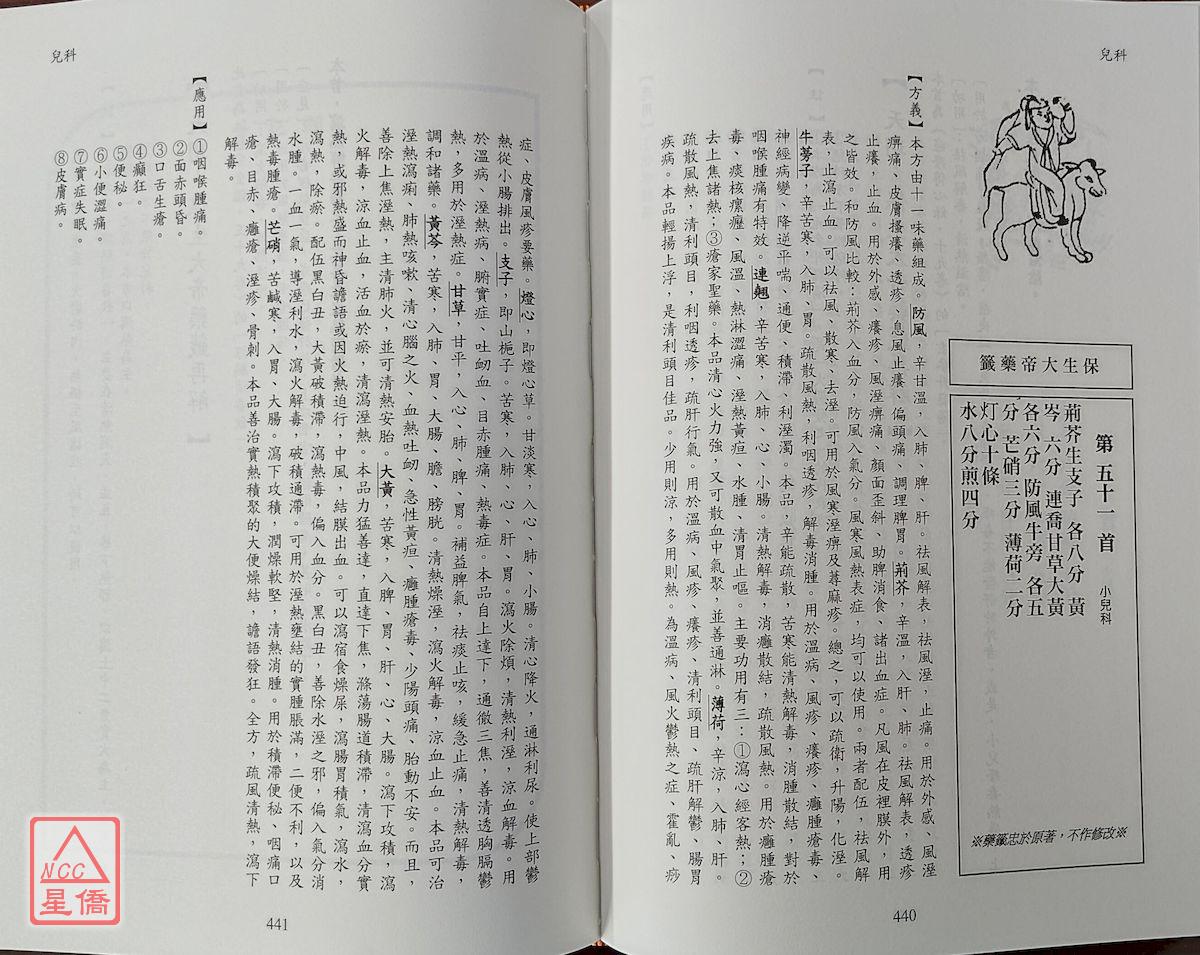 兒科
保生大帝藥籤
第五十一首 小兒科
荊芥生支子 各八分 黃
岑 六分 連喬甘草大黃
各六分 防風牛旁 各五
分 芒硝三分 薄荷二分
灯心十條
水八分煎四分
※藥籤忠於原著，不作修改※
【方義】本方由十一味藥組成。防風，辛甘溫，入肺、脾、肝。祛風解表，祛風溼，止痛。用於外感、風溼
痹痛、皮膚搔癢、透疹、息風止癢、偏頭痛、調理脾胃。荊芥，辛溫，入肝、肺。祛風解表，透疹
止癢，止血。用於外感、癢疹、風溼痹痛、顏面歪斜、助脾消食、諸出血症。凡風在皮裡膜外，用
之皆效。和防風比較：荊芥入血分，防風入氣分。風寒風熱表症，均可以使用。兩者配伍，祛風解
表，止瀉止血。可以祛風、散寒、去溼。可用於風寒溼痹及蕁麻疹。總之，可以疏衛，升陽，化溼。
牛蒡子，辛苦寒，入肺、胃。疏散風熱，利咽透疹，解毒消腫。用於溫病、風疹、癢疹、癰腫瘡毒、
神經病變、降逆平喘、通便、積滯、利溼濁。本品，辛能疏散，苦寒能清熱解毒，消腫散結，對於
咽喉腫痛有特效。連翹，辛苦寒，入肺、心、小腸。清熱解毒，消癰散結，疏散風熱。用於癰腫瘡
毒、痰核瘰癧、風溫、熱淋澀痛、溼熱黃疸、水腫、清胃止嘔。主要功用有三：①瀉心經客熱；②
去上焦諸熱；③瘡家聖藥。本品清心火力強，又可散血中氣聚，並善通淋。薄荷，辛涼，入肺、肝。
疏散風熱，清利頭目，利咽透疹，疏肝行氣。用於溫病、風疹、癢疹、清利頭目、疏肝解鬱、腸胃
疾病。本品輕揚上浮，是清利頭目佳品。少用則涼，多用則熱。為溫病、風火鬱熱之症、霍亂、痧
440
兒科
症、皮膚風疹要藥。燈心，即燈心草。甘淡寒，入心、肺、小腸。清心降火，通淋利尿。使上部鬱
熱從小腸排出。支子，即山梔子。苦寒，入肺、心、肝、胃。瀉火除煩，清熱利溼，涼血解毒。用
於溫病、溼熱病、腑實症、吐衂血、目赤腫痛、熱毒症。本品自上達下，通徹三焦，善清透胸膈鬱
熱，多用於溼熱症。甘草，甘平，入心、肺、脾、胃。補益脾氣，祛痰止咳，緩急止痛，清熱解毒，
調和諸藥。黃芩，苦寒，入肺、胃、大腸、膽、膀胱。清熱燥溼，瀉火解毒，涼血止血。本品可治
溼熱瀉痢、肺熱咳嗽、清心腦之火、血熱吐衂、急性黃疸、癰腫瘡毒、少陽頭痛、胎動不安。而且，
善除上焦溼熱，主清肺火，並可清熱安胎。大黃，苦寒，入脾、胃、肝、心、大腸。瀉下攻積，瀉
火解毒，涼血止血，活血於瘀，清瀉溼熱。本品力猛善達，直達下焦，滌蕩腸道積滯，清瀉血分實
熱，或邪熱盛而神昏譫語或因火熱迫行，中風，結膜出血。可以瀉宿食燥屎，瀉腸胃積氣，瀉水，
瀉熱，除瘀。配伍黑白丑，大黃破積滯，瀉熱毒，偏入血分。黑白丑，善除水溼之邪，偏入氣分消
水腫。一血一氣，導溼利水，瀉火解毒，破積通滯。可用於溼熱壅結的實腫脹滿，二便不利，以及
熱毒腫瘡。芒硝，苦鹹寒，入胃、大腸。瀉下攻積，潤燥軟堅，清熱消腫。用於積滯便秘、咽痛口
瘡、目赤、癰瘡、溼疹、骨刺。本品善治實熱積聚的大便燥結，譫語發狂。全方，疏風清熱，瀉下
解毒。
【應用】①咽喉腫痛。
②面赤頭昏。
③口舌生瘡。
④癲狂。
⑤便秘。
⑥小便澀痛。
⑦實症失眠。
⑧皮膚病。
441
NCC
星僑